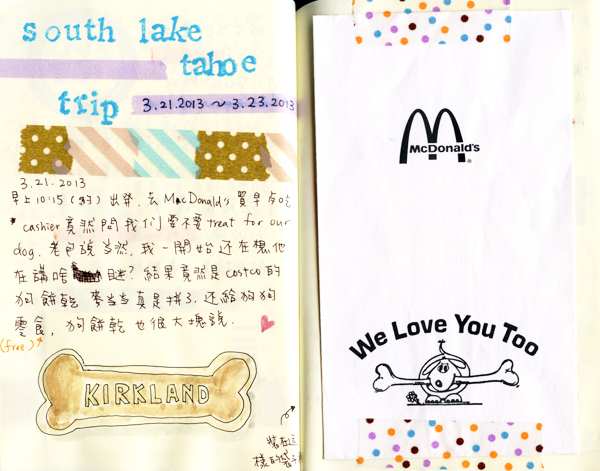 south lake
tahoe
trip 3.21.2013 ~ 3.23.2013
3.21.2013
早上10:15 出發, 去MacDonald's 買早点吃
cashier 竟然問我们要不要 treat for our
dog. 老包說当然, 我一開始还在想他
在講啥 謎? 結果竟然是costco的
狗餅乾 麥当当真是拼了, 还給狗狗
零食, 狗餅乾也很大塊說.
(free)
KIRKLAND
裝在這
樣的袋子
McDonald's®
We Love You Too